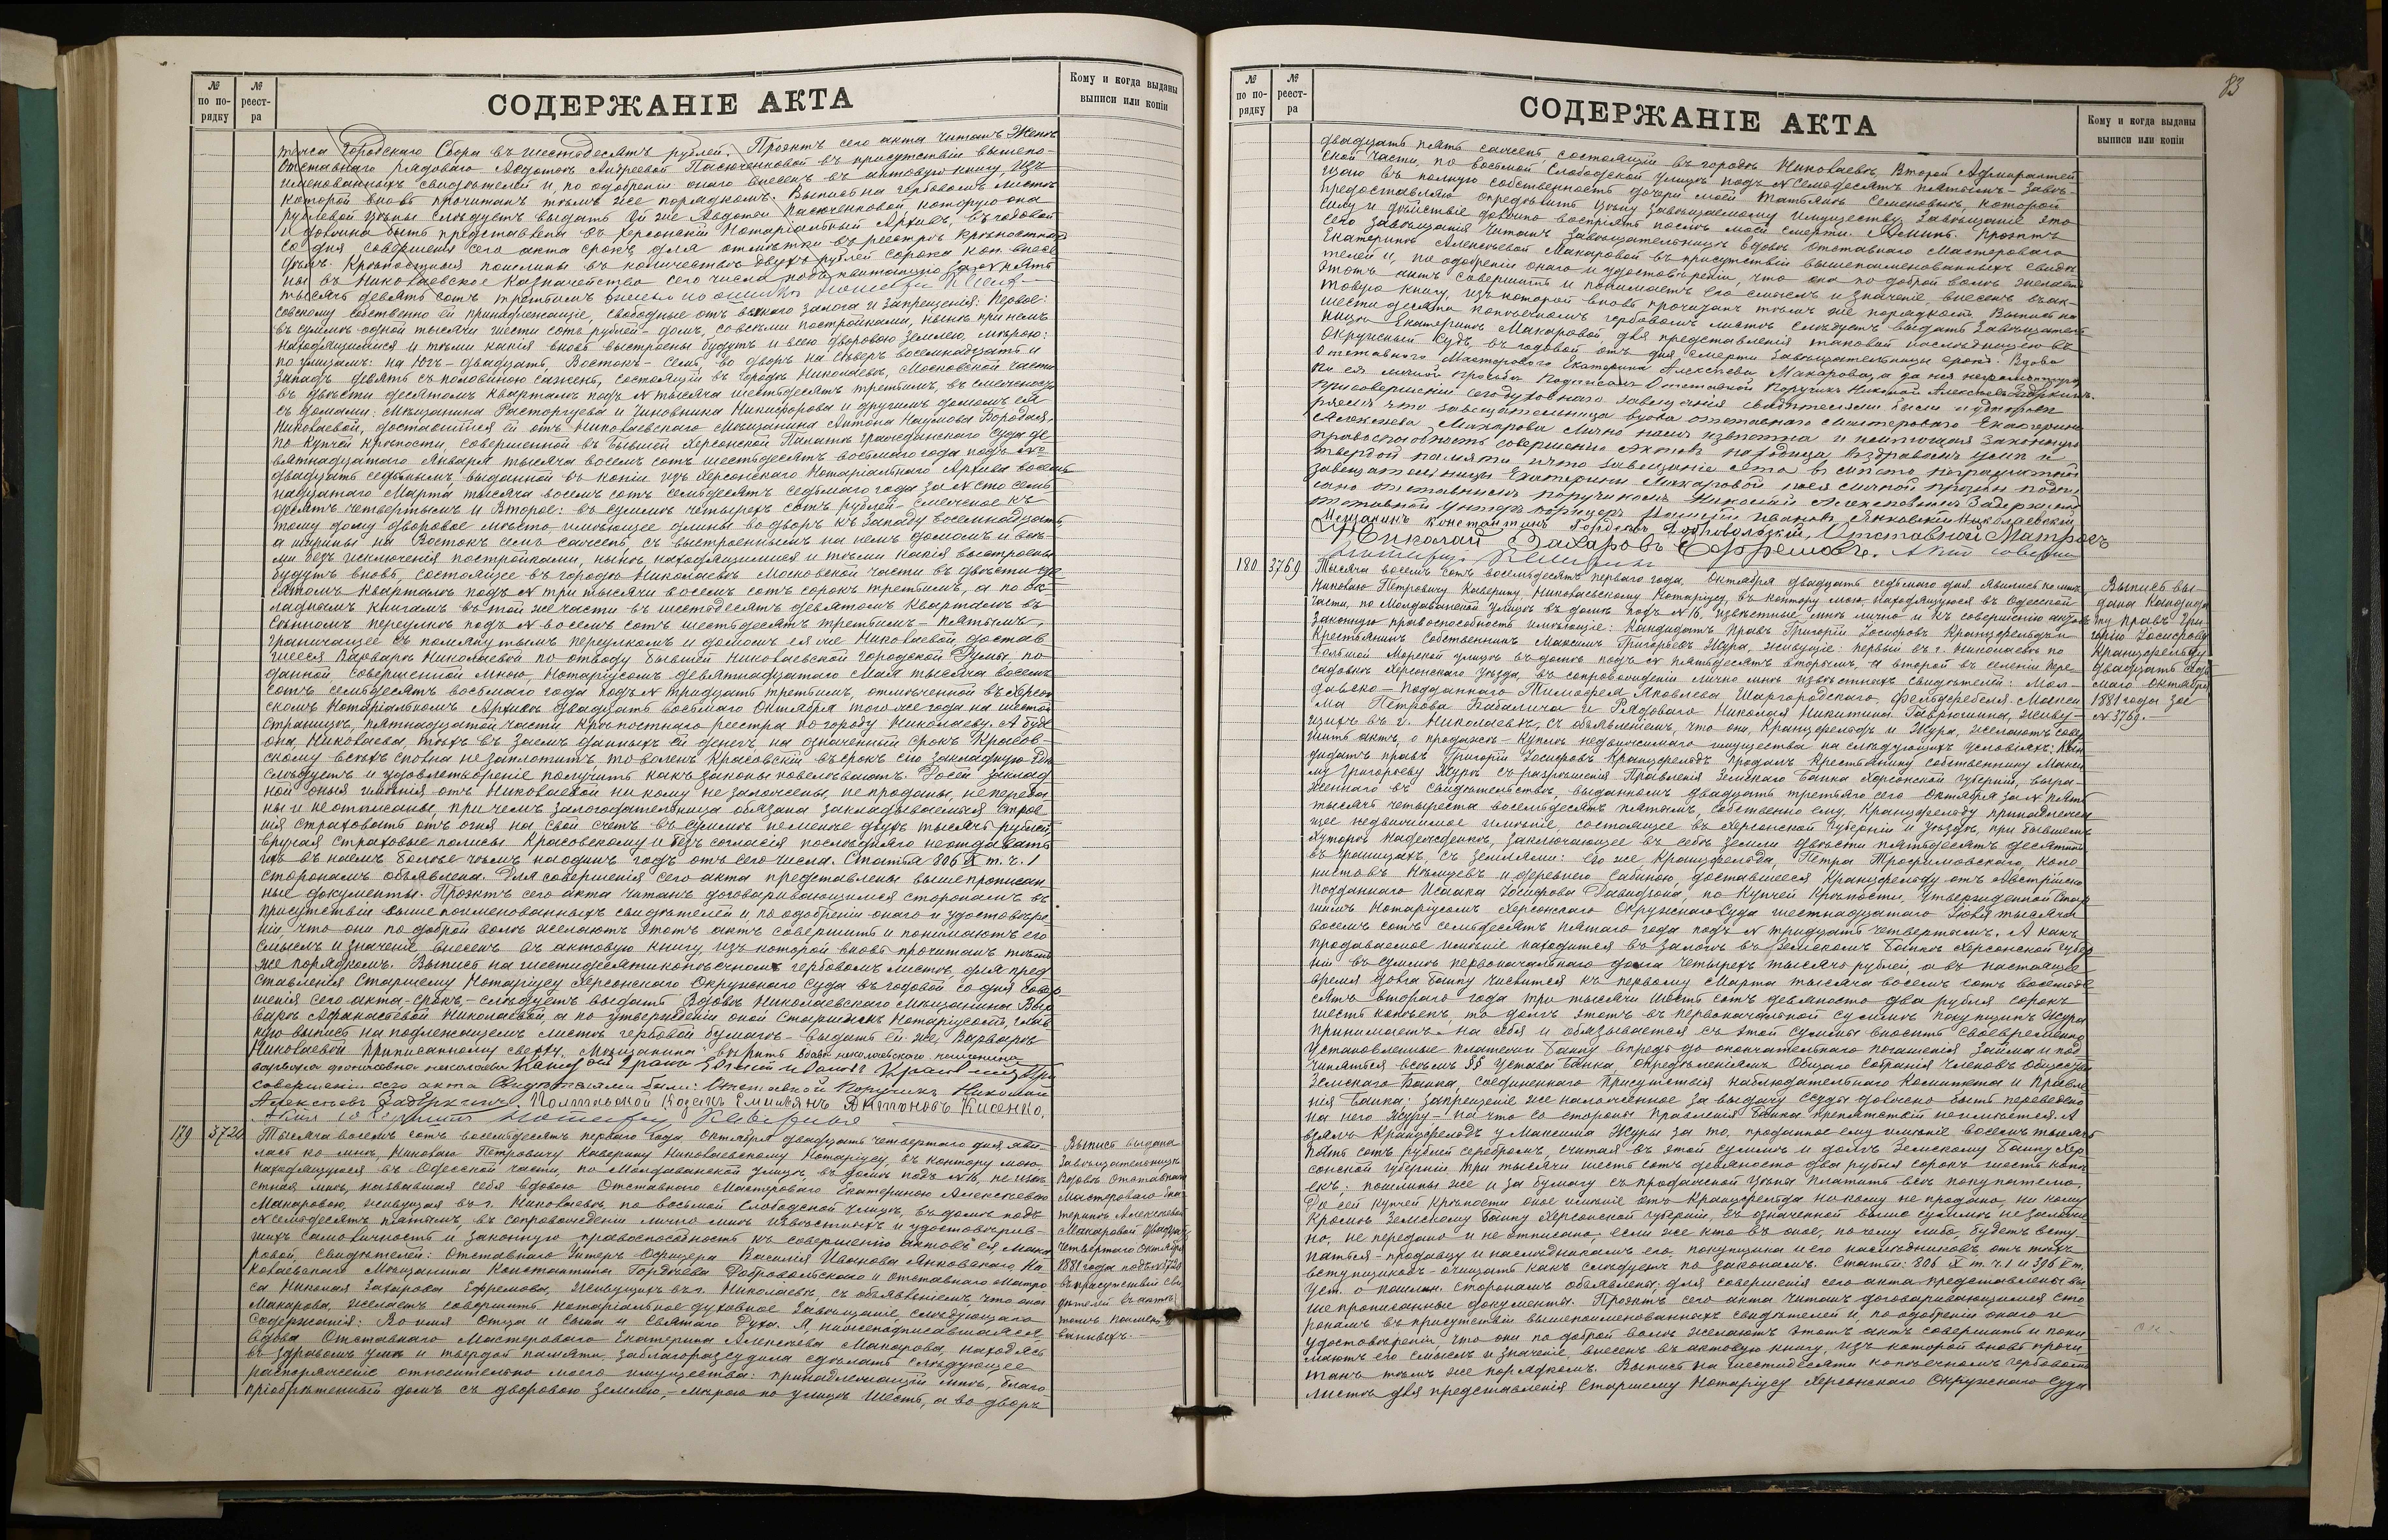 № по по-рядку
№ реест-ра
СОДЕРЖАНІЕ АКТА
Кому и когда выданы выписи или копіи
Городскаго Сбора въ шестьдесятъ рублей. Проэктъ сего акта читанъ Женѣ
Отставнаго Рядоваго Авдотьѣ Андреевой Пасюченковой въ присутствіи вышепо-
именованныхъ свидѣтелей и, по одобреніи онаго внесенъ въ актовую книгу, изъ
которой вновь прочитанъ тѣмъ же порядкомъ. Выпись на гербовомъ листѣ
рублевой цѣны слѣдуетъ выдать ей же Авдотьѣ Пасюченковой, которую она
и должна быть представлена въ Херсонскій Нотаріальный Архивъ, въ годовой
со дня совершенія сего акта срокъ, для отмѣтки въ реестрѣ крѣпостныхъ
дѣлъ. Крѣпостныя пошлины въ количествѣ двухъ рублей сорока коп. внесе
ны въ Николаевское Казначейство сего числа подъ квитанцію за № пять
тысячъ девять сотъ третьимъ
совскому собственно ей принадлежащіе, свободные отъ всякаго залога и запрещенія: Первое:
въ суммѣ одной тысячи шести сотъ рублей - домъ, со всѣми постройками, нынѣ при немъ
находящимися и тѣми какія вновь выстроены будутъ и всею дворовою землею, мѣрою:
по улицамъ: на Югъ - двадцать, Востокъ - семь, во дворъ на Сѣверъ восемнадцать и
Западъ девять съ половиною сажень, состоящій въ городѣ Николаевѣ, Московской части
въ двѣсти десятомъ кварталѣ подъ № тысяча шестьдесятъ третьимъ, въ смежности
съ домами: Мѣщанина Расторгуева и Чиновника Никифорова и другимъ домомъ ея
Николаевой, доставшійся ей отъ Николаевскаго Мѣщанина Антона Наумова Бородая,
по купчей крѣпости, совершенной въ бывшей Херсонской Палатѣ Гражданскаго Суда де-
вятнадцатаго Января тысяча восемь сотъ шестьдесятъ восьмаго года подъ №
двадцать седьмымъ, выданной въ копіи изъ Херсонскаго Нотаріальнаго Архива восем
надцатаго Марта тысяча восемь сотъ семьдесятъ седьмаго года за № сто семь
десятъ четвертымъ и Второе: въ суммѣ четырехъ сотъ рублей - смежное къ
тому дому дворовое мѣсто имѣющее длины во дворъ къ Западу восемнадцать
а ширины на Востокъ семь сажень, съ выстроеннымъ на немъ домомъ и всѣ-
ми безъ исключенія постройками, нынѣ находящимися и тѣми какія выстроены
будутъ вновь, состоящее въ городѣ Николаевѣ Московской части въ двѣсти де
сятомъ кварталѣ подъ № три тысячи восемь сотъ сорокъ третьимъ, а по ок
ладнымъ книгамъ въ той же части въ шестьдесятъ девятомъ кварталѣ въ
переулкѣ подъ № восемь сотъ шестьдесятъ третьимъ - пятымъ,
граничащее съ помянутымъ переулкомъ и домомъ ея же Николаевой достав
шееся Варварѣ Николаевой по отводу бывшей Николаевской Городской Думы, по
данной, совершенной мною, Нотаріусомъ девятнадцатаго Мая тысяча восемь
сотъ семьдесятъ восьмаго года подъ № тридцать третьимъ, отмѣченной въ Херсон
скомъ Нотаріальномъ Архивѣ двадцать восьмаго Октября того же года на шестой
страницѣ, пятнадцатой части Крѣпостнаго реестра по городу Николаеву. А буде
она, Николаева, тѣхъ въ заемъ данныхъ ей денегъ на означенный срокъ Красов-
скому всѣхъ сполна не заплотитъ, то воленъ Красовскій въ срокъ сію закладную
слѣдуетъ и удовлетвореніе получить какъ законы повелѣваютъ. До сей заклад
ной оныя имѣнія отъ Николаевой ни кому не заложены, не проданы, не переда
ны и не отписаны, при чемъ залогодательница обязана закладываемыя строе
нія страховать отъ огня на свой счетъ въ суммѣ не менѣе двухъ тысячъ рублей,
вручая страховые полисы Красовскому и безъ согласія послѣдняго не отдавать
ихъ въ наемъ болѣе чѣмъ на одинъ годъ отъ сего числа. Статья 806 X т. ч. 1
сторонамъ объявлена. Для совершенія сего акта представлены вышепрописан
ные документы. Проэктъ сего акта читанъ договаривающимся сторонамъ въ
присутствіи выше поименованныхъ свидѣтелей и, по одобреніи онаго и удостовѣре
ніи что они по доброй волѣ желаютъ этотъ актъ совершить и понимаютъ его
смыслъ и значеніе, внесенъ въ актовую книгу изъ которой вновь прочитанъ тѣмъ
же порядкомъ. Выпись на шестидесятикопѣечномъ гербовомъ листѣ, для пред
ставленія Старшему Нотаріусу Херсонскаго Окружнаго Суда въ годовой со дня совер
шенія сего акта - срокъ, - слѣдуетъ выдать Вдовѣ Николаевскаго Мѣщанина Вар
варѣ Афанасьевой Николаевой, а по утвержденіи оной Старшимъ Нотаріусомъ, глав
ную выпись на подлежащемъ листѣ гербовой бумаги - выдать ей же, Варварѣ
Николаевой. Приписанному сверху: „Мѣщанина“ вѣрить. Вдова николаевского мещанина
варвара афанасьева николаева.
совершеніи сего акта Свидѣтелями были: Отставной Поручикъ Николай
Алексѣевъ Задеркинъ, Полтавской Козакъ Емильянъ Антоновъ Кисенко.
179 3724 Тысяча восемь сотъ восемьдесятъ перваго года, Октября двадцать четвертаго дня, яви-
лась ко мнѣ, Николаю Петровичу Каверину Николаевскому Нотаріусу, въ контору мою,
находящуюся въ Одесской части, по Молдаванской улицѣ, въ домѣ подъ № 16, не извѣ-
стная мнѣ, назвавшая себя вдовою Отставнаго Мастероваго Екатериною Алексѣевою
Макаровою, живущая въ г. Николаевѣ, по восьмой Слободской улицѣ, въ домѣ подъ
№ семьдесятъ пятымъ, въ сопровожденіи лично мнѣ извѣстныхъ и удостовѣрив-
шихъ самоличность и законную правоспособность къ совершенію актовъ ея, Мака
ровой, свидѣтелей: Отставнаго Унтеръ-Офицера Василія Иванова Янковскаго, Ни
колаевскаго Мѣщанина Константина Гордѣева Добровольскаго и отставнаго матро
са Николая Захарова Ефремова, живущихъ въ г. Николаевѣ, съ объявленіемъ, что она
Макарова, желаетъ совершить нотаріальное духовное завѣщаніе, слѣдующаго
содержанія: Во имя Отца и Сына и Святаго Духа. Я, нижеподписавшаяся
вдова Отставнаго Мастероваго Екатерина Алексѣева Макарова, находясь
въ здравомъ умѣ и твердой памяти, заблагоразсудила сдѣлать слѣдующее
распоряженіе относительно моего имущества: принадлежащій мнѣ, благо
пріобрѣтенный домъ, съ дворовою землею, - мѣрою по улицѣ шесть, а во дворъ
Выпись выдана
Завѣщательницѣ
Вдовѣ Отставнаго
Мастероваго Ека
теринѣ Алексѣевой
Макаровой двадцать
четвертаго Октября
1881 года подъ № 3724
въ присутствіи сви
дѣтелей въ актѣ
томъ поимено
ванныхъ. -
83
№ по по-рядку
№ реест-ра
СОДЕРЖАНІЕ АКТА
Кому и когда выданы выписи или копіи
двадцать пять сажень, состоящій въ городѣ Николаевѣ, Второй Адмиралтей-
ской части, по восьмой Слободской улицѣ подъ № семьдесятъ пятымъ - завѣ-
щаю въ полную собственность дочери моей Татьянѣ Семеновымъ, которой
предоставляю опредѣлить цѣну завѣщаемому имуществу. Завѣщаніе это
силу и дѣйствіе должно воспріять послѣ моей смерти. Аминь. Проэктъ
сего завѣщанія читанъ завѣщательницѣ вдовѣ Отставнаго Мастероваго
Екатеринѣ Алексѣевой Макаровой въ присутствіи вышепоименованныхъ свидѣ
телей и, по одобреніи онаго и удостовѣреніи, что она по доброй волѣ желаетъ
этотъ актъ совершить и понимаетъ его смыслъ и значеніе, внесенъ въ ак-
товую книгу, изъ которой вновь прочитанъ тѣмъ же порядкомъ. Выпись на
шестидесяти копѣечномъ гербовомъ листѣ слѣдуетъ выдать завѣщатель
ницѣ Екатеринѣ Макаровой, для представленія таковой наслѣдницею въ
Окружный Судъ, въ годовой отъ дня смерти завѣщательницы срокъ. Вдова
Отставнаго Мастероваго Екатерина Алексѣева Макарова, а за нея неграмотную,
по ея личной просьбѣ подписалъ Отставной Поручикъ Николай Алексѣевъ Задеркинъ.
При совершеніи сего духовнаго завещанія свидѣтелями были и удостовѣ
ряемъ что завещательница вдова отставнаго мастероваго Екатерина
Алексеева Макарова лично намъ извѣстна и имѣющая законную
правоспособность совершенію актовъ находица въ здравомъ уме и
твердой памяти и что завещаніе это вместо неграматной
завещательницы Екатерины Макаровой по ея личной прозби подпи
сано отставнымъ поручикомъ Николай Алексеевымъ Задеркинымъ
отставной унтеръ офицеръ Василій Ивановъ Янковскій Николаевскій
Мещанинъ Константинъ Гордеевъ Добровольскій, Отставной Матросъ
Николай Захаровъ Ефремовъ.
180 3769 Тысяча восемь сотъ восемьдесятъ перваго года, Октября двадцать седьмаго дня, явились ко мнѣ,
Николаю Петровичу Каверину, Николаевскому Нотаріусу, въ контору мою находящуюся въ Одесской
части, по Молдаванской улицѣ въ домѣ подъ № 16, извѣстные мнѣ лично и къ совершенію актовъ
законную правоспособность имѣющіе: Кандидатъ Правъ Григорій Іосифовъ Кранцфельдъ и
Крестьянинъ Собственникъ Максимъ Григорьевъ Жура, живущіе: первый въ г. Николаевѣ по
Большой Морской улицѣ въ домѣ подъ № пятьдесятъ вторымъ, а второй въ селеніи Пере-
садовкѣ Херсонскаго уѣзда, въ сопровожденіи лично мнѣ извѣстныхъ свидѣтелей: Мол-
давско-подданнаго Тимофея Яковлева Шаргородскаго, Фельдфебеля Макси
ма Петрова Бабалича и Рядоваго Николая Никитина Гаврюшина, живу-
щихъ въ г. Николаевѣ, съ объявленіемъ, что они, Кранцфельдъ и Жура, желаютъ совер
шить актъ, о продажѣ - куплѣ недвижимаго имущества на слѣдующихъ условіяхъ: Кан
дидатъ правъ Григорій Іосифовъ Кранцфельдъ продалъ Крестьянину собственнику Макси
му Григорьеву Журѣ съ разрѣшенія Правленія Земскаго Банка Херсонской губерніи, выра-
женнаго въ свидѣтельствѣ, выданномъ двадцать третьяго сего Октября за № пять
тысячъ четыреста восемьдесятъ пятымъ, собственно ему, Кранцфельду принадлежа
щее недвижимое имѣніе, состоящее въ Херсонской губерніи и уѣздѣ, при бывшемъ
хуторѣ Надеждовкѣ, заключающее въ себѣ земли двѣсти пятьдесятъ десятинъ
въ границахъ, съ землями: его же, Кранцфельда, Петра Трофимовскаго, коло
нистовъ Нѣмцевъ и деревнею Сабиною, доставшееся Кранцфельду отъ Австрійско
подданнаго Исаака Іосифова Давидзона, по Купчей Крѣпости, утвержденной Стар
шимъ Нотаріусомъ Херсонскаго Окружнаго Суда шестнадцатаго Іюля тысяча
восемь сотъ семьдесятъ пятаго года подъ № тридцать четвертымъ. А какъ
продаваемое имѣніе находится въ залогѣ въ Земскомъ Банкѣ Херсонской губер
ніи въ суммѣ первоначальнаго долга четырехъ тысячъ рублей, а въ настоящее
время долга Банку числится къ первому Марта тысяча восемь сотъ восемьде
сятъ втораго года три тысячи шесть сотъ девяносто два рубля сорокъ
шесть копѣекъ, то долгъ этотъ въ первоначальной суммѣ покупщикъ Жура
принимаетъ на себя и обязывается съ этой суммы вносить своевременно
установленные платежи Банку впредь до окончательнаго погашенія займа и под
чиняться всѣмъ §§ Устава Банка, опредѣленіямъ Общаго Собранія членовъ Общества
Земскаго Банка, соединеннаго присутствія наблюдательнаго Комитета и Правле
нія Банка; запрещеніе же наложенное за выдачу ссуды должно быть переведено
на него Журу - на что со стороны Правленія Банка препятствій не имѣется. А
взялъ Кранцфельдъ у Максима Журы за то, проданное ему имѣніе восемь тысячъ
пять сотъ рублей серебромъ, считая въ этой суммѣ и долгъ Земскому Банку Хер
сонской губерніи три тысячи шесть сотъ девяносто два рубля сорокъ шесть копѣ
екъ; пошлины же и за бумагу съ продажной цѣны платить всѣ покупателю.
До сей купчей крѣпости оное имѣніе отъ Кранцфельда ни кому не продано, ни кому
кромѣ Земскому Банку Херсонской губерніи, въ означенной выше суммѣ не заложе
но, не передано и не отписано; если же кто въ оное, почему либо, будетъ всту-
паться - продавцу и наслѣдникамъ его, покупщика и его наслѣдниковъ, отъ тѣхъ
вступщиковъ - очищать какъ слѣдуетъ по законамъ. Статьи: 806 X т. ч. 1 и 396 V т.
Уст. о пошлин. сторонамъ объявлены; для совершенія сего акта представлены вы
шепрописанные документы. Проэктъ сего акта читанъ договаривающимся сто
ронамъ въ присутствіи вышепоименованныхъ свидѣтелей и, по одобреніи онаго и
удостовѣреніи, что они по доброй волѣ желаютъ этотъ актъ совершить и пони
маютъ его смыслъ и значеніе, внесенъ въ актовую книгу, изъ которой вновь прочи
танъ тѣмъ же порядкомъ. Выпись на шестидесяти копѣечномъ гербовомъ
листѣ для представленія Старшему Нотаріусу Херсонскаго Окружнаго Суда
Выпись вы-
дана Кандида
ту правъ Гри-
горію Іосифову
Кранцфельду
двадцать седь
маго Октября
1881 года за
№ 3769. -